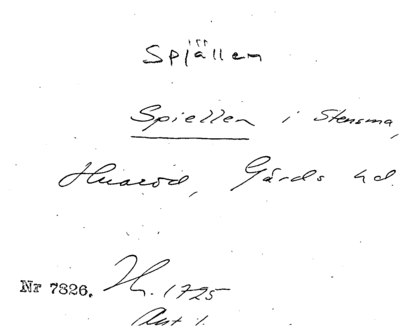 Spjällen
Spiellen i Stensma,
Huaröd, Gärds hd.
Nr 7826. H. 1725